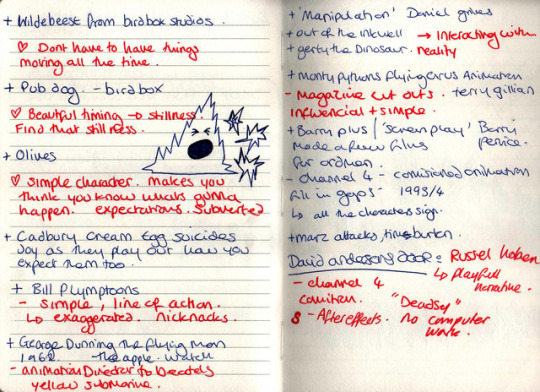 + Wildebeest from birdbox studios.
♡ Dont have to have things
moving all the time.
+ Pub dog. - birdbox
♡ Beautiful timing → stillness.
Find that stillness.
+ Olives
♡ simple character. makes you
think you know whats gunna
happen. expectations. Subverted
+ Cadbury Cream Egg suicides
Joy as they play out how you
expect them too.
+ Bill Plymptoons
- simple, line of action.
↳ exaggerated. nicknacks.
+ George Dunning the flying man
1962. the apple. watch
- animation Director to Beatles
yellow submarine.
+ 'Manipulation' Daniel greives
+ out of the inkwell → Interacting with
+ gerty the Dinosaur. reality
+ monty pythons flying circus Animation
- magazine cut outs. terry gillian
influencial + simple.
+ Barry plus / 'screen play' Barry
Made a few films
- channel 4 - comissioned animation
fill in gaps - 1993/4
↳ all the characters sign.
+ marz attacks, tim burton.
David andersons DOOR = Russel hoben
↳ playfull
narative.
- channel 4
"Deadsy"
- After effects. No computer
work.